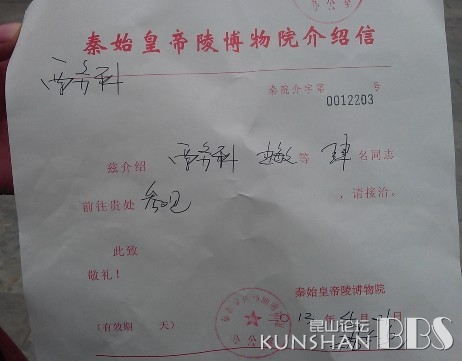 秦始皇帝陵博物院介绍信
票务科
秦院介字第 0012203 号
兹介绍 票务科 等 肆 名同志
前往贵处 参观 ,请接洽。
此致
敬礼!
秦始皇帝陵博物院
2013年4月21日
(有效期 天)
昆山论坛
KUNSHAN BBS